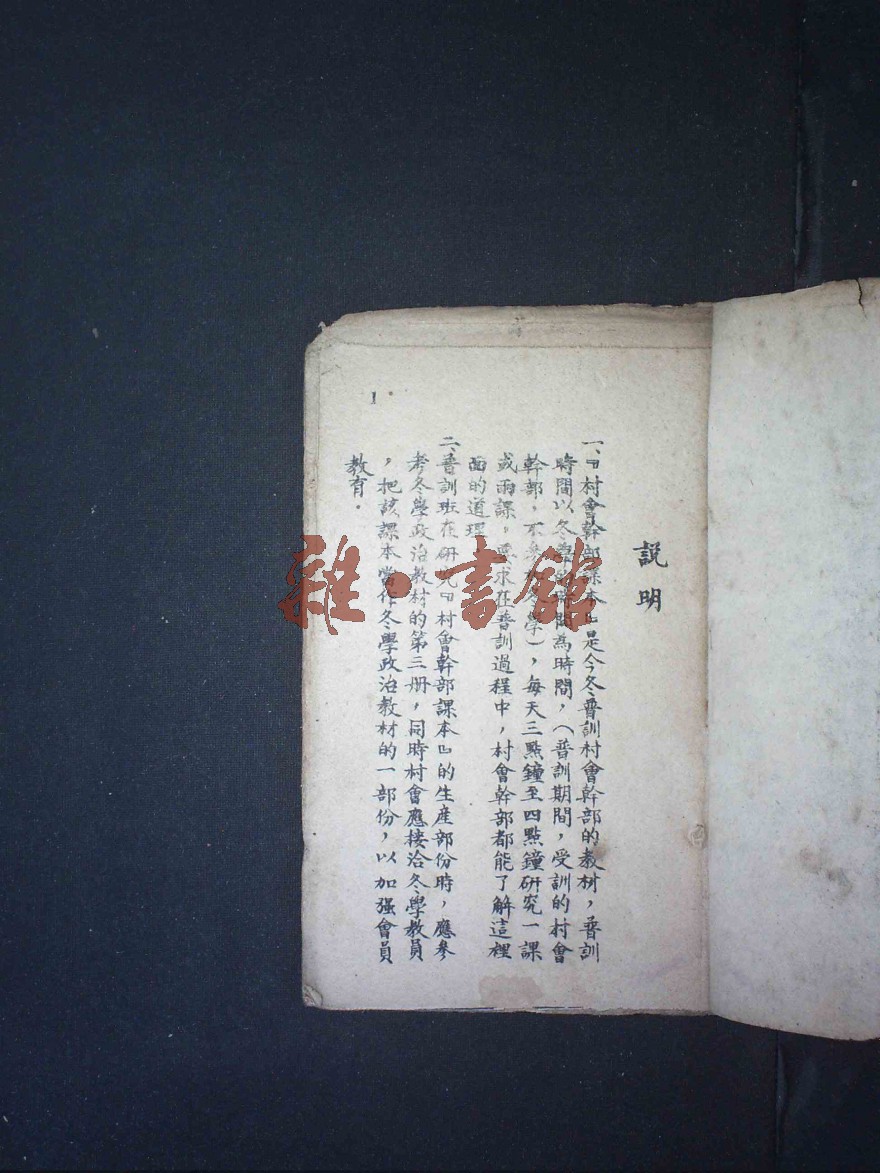 説明
一、『村會幹部課本』是今冬普訓村會幹部的教材，普訓
時間以冬學時間為時間，（普訓期間，受訓的村會
幹部，不參加冬學），每天三點鐘至四點鐘研究一課
或兩課。要求在普訓過程中，村會幹部都能了解這裡
面的道理
二、普訓班在研究『村會幹部課本』的生産部份時，應參
考冬學政治教材的第三册，同時村會應接洽冬學教員
，把該課本當作冬學政治教材的一部份，以加强會員
教育．
1
雜·書館